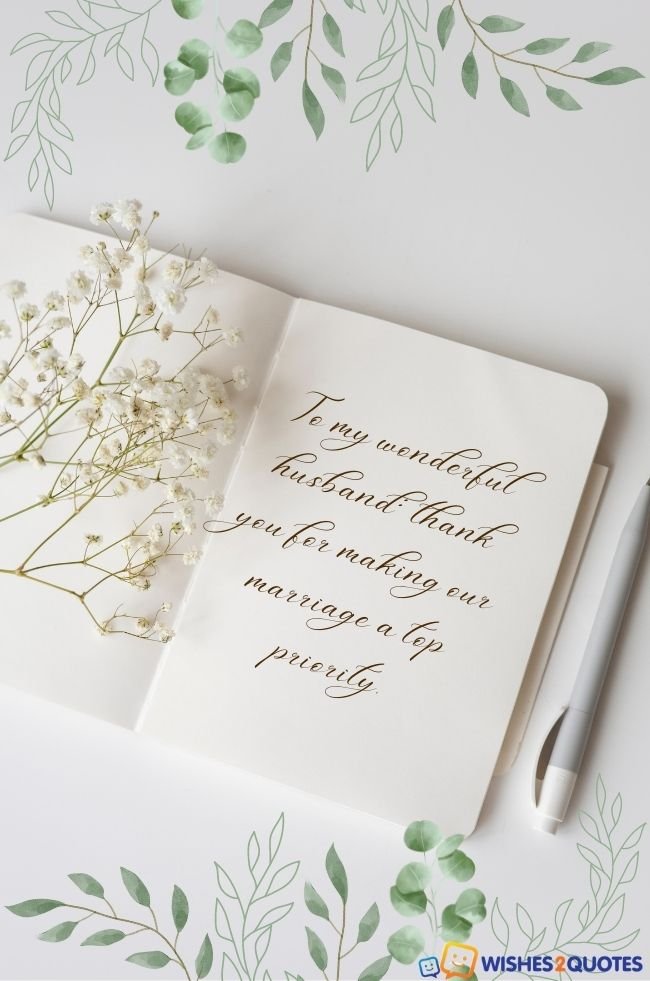 To my wonderful
husband: thank
you for making our
marriage a top
priority.
WISHES2QUOTES